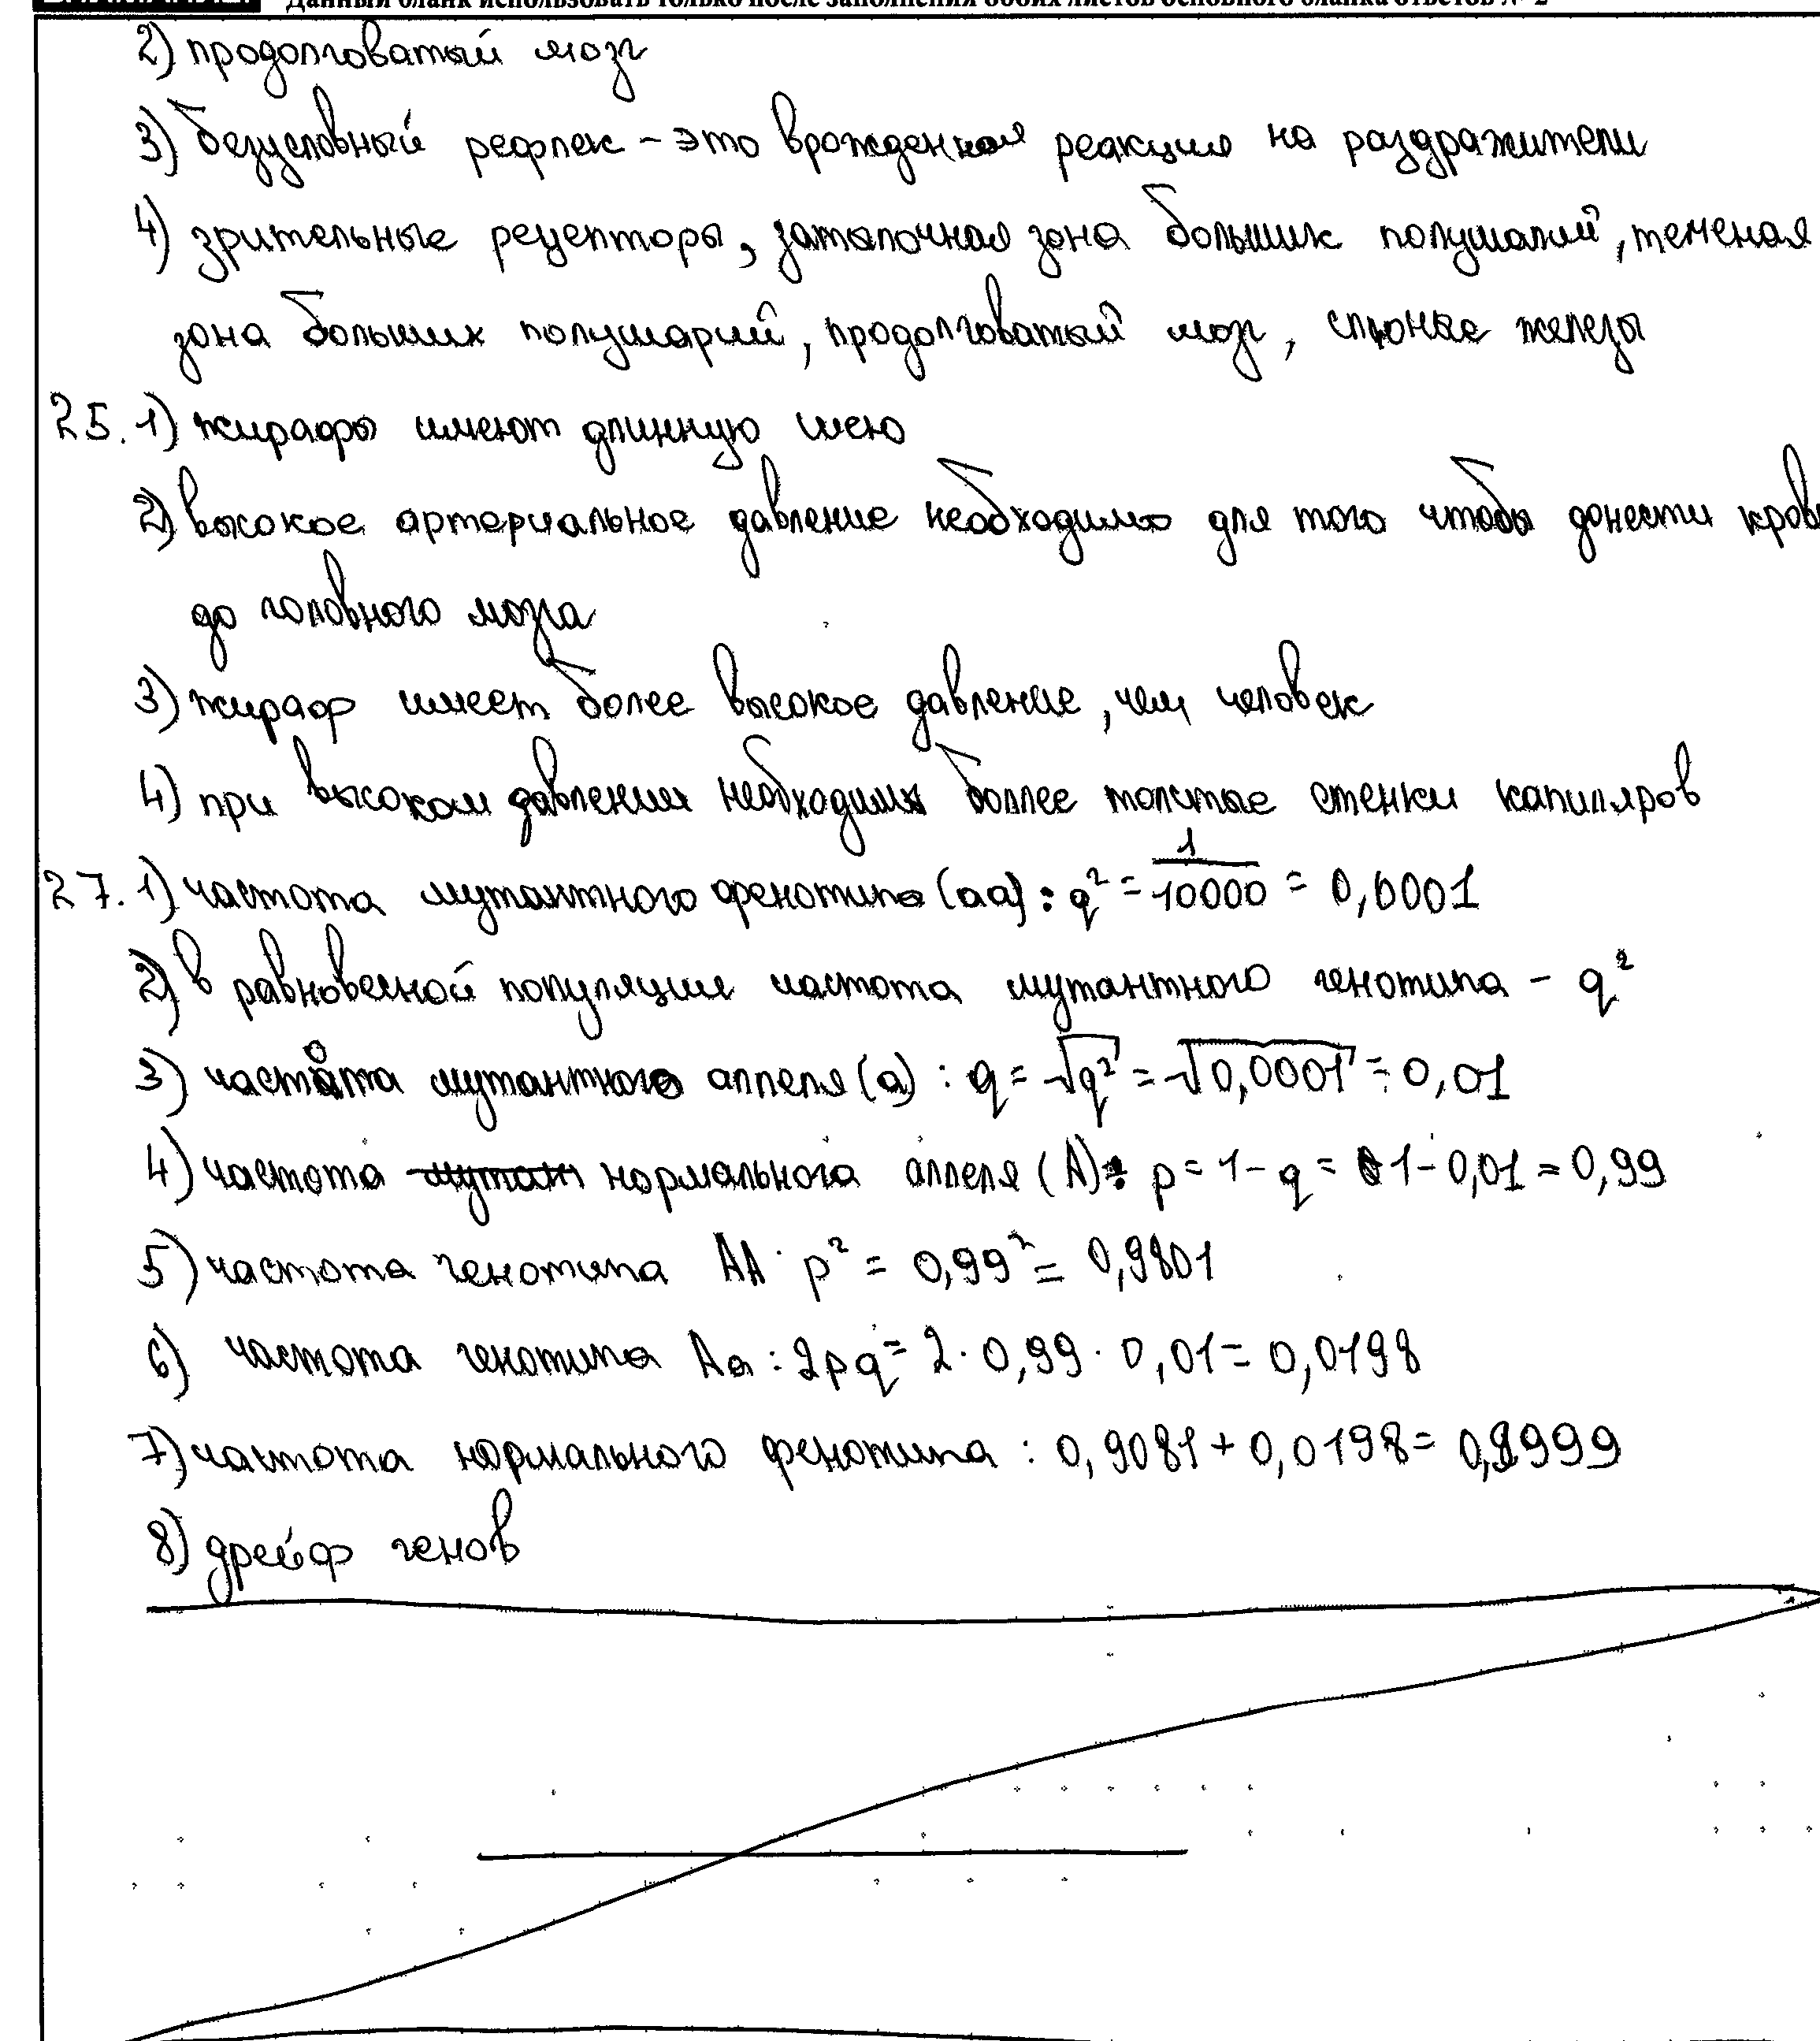 Данный бланк использовать только после заполнения обоих листов основного бланка ответов № 2
2) продолговатый мозг
3) безусловный рефлек – это врожденная реакция на раздражители
4) зрительные рецепторы, затылочная зона больших полушарий, теменая
зона больших полушарий, продолговатый мозг, слюные железы
25. 1) жирафы имеют длинную шею
2) высокое артериальное давление необходимо для того чтобы донести кровь
до головного мозга
3) жираф имеет более высокое давление, чем человек
4) при высоком давлении необходимы боллее толстые стенки капиляров
27. 1) частота мутантного фенотипа (aa): q² = 1/10000 = 0,0001
2) в равновесной популяции частота мутантного генотипа – q²
3) частота мутантного аллеля (a): q = √q² = √0,0001 = 0,01
4) частота нормального аллеля (A): p = 1 – q = 1 – 0,01 = 0,99
5) частота генотипа AA p² = 0,99² = 0,9801
6) частота генотипа Aa : 2pq = 2 · 0,99 · 0,01 = 0,0198
7) частота нормального фенотипа : 0,9081 + 0,0198 = 0,9999
8) дрейф генов